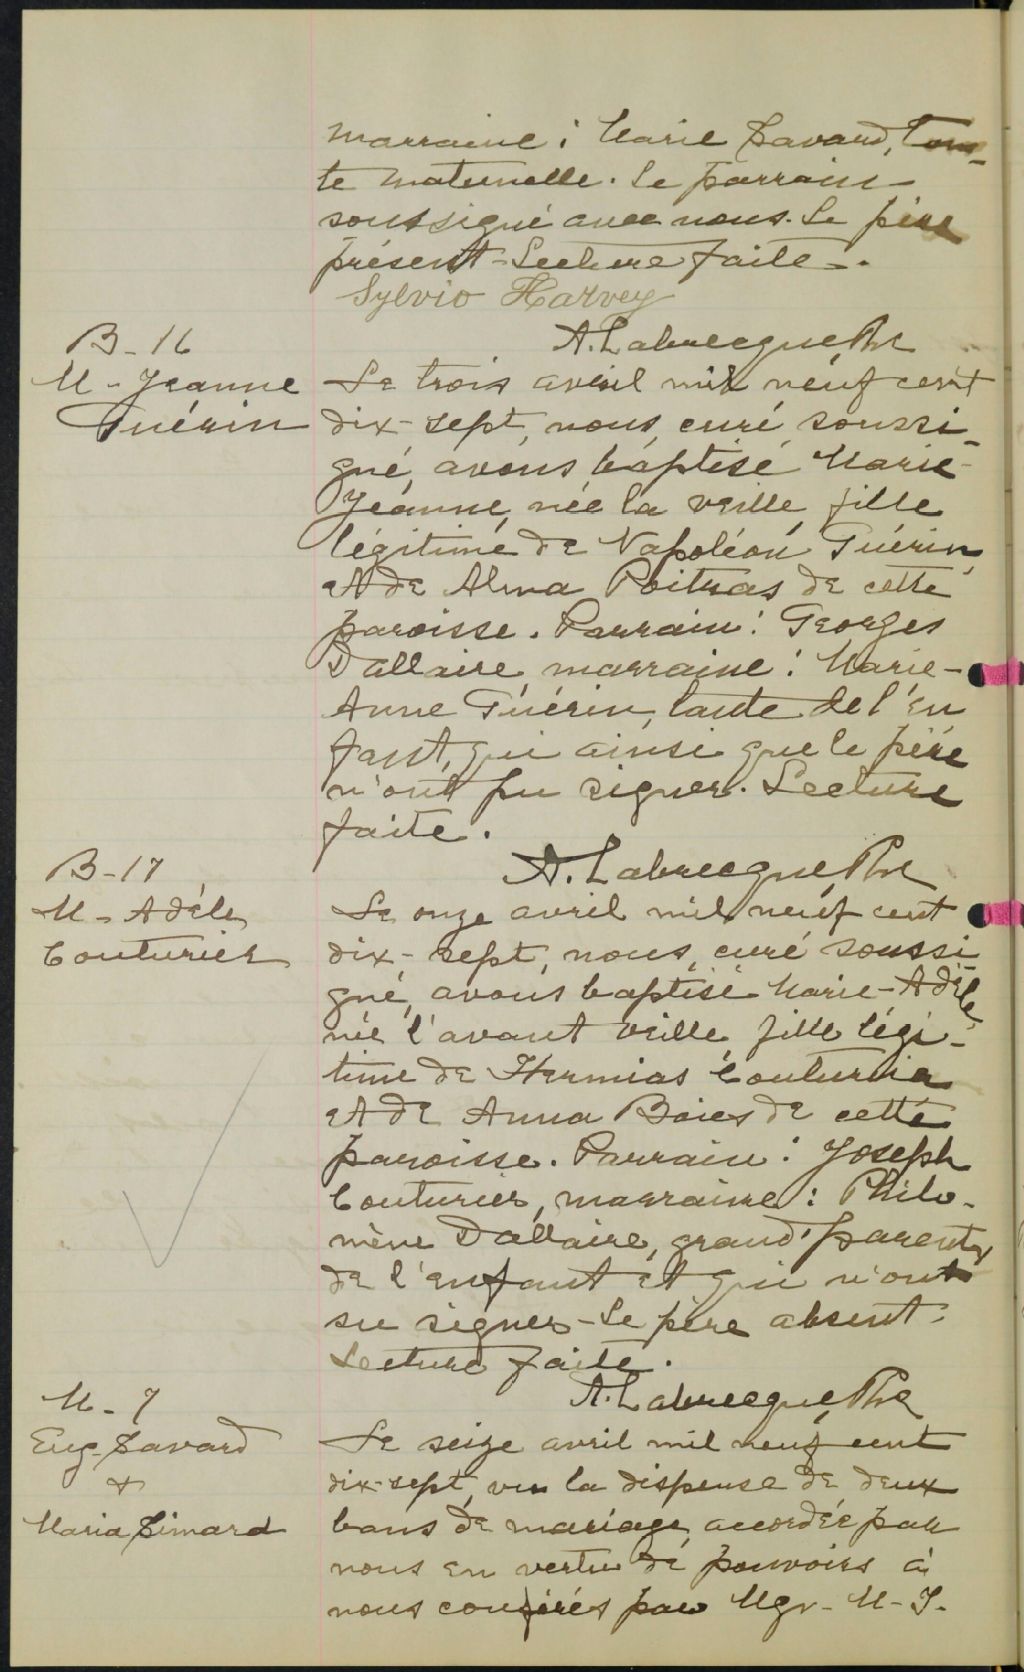 marraine : Marie Savard, tan-
te maternelle. Le parrain
soussigné avec nous. Le père
présent - Lecture faite -.
Sylvio Harvey
A. Labrecque Ptre
B - 16
M - Jeanne
Guérin
Le trois avril mil neuf cent
dix-sept, nous, curé soussi-
gné, avons baptisé Marie-
Jeanne, née la veille, fille
légitime de Napoléon Guérin
et de Alma Poitras de cette
paroisse. Parrain : Georges
Dallaire, marraine : Marie-
Anne Guérin, tante de l'en
fant, qui ainsi que le père
n'ont pu signer. Lecture
faite.
A. Labrecque, Ptre
B - 17
M - Adèle
Couturier
Le onze avril mil neuf cent
dix-sept, nous, curé soussi-
gné, avons baptisé Marie-Adèle,
née l'avant veille, fille légi-
time de Hermias Couturier
et de Anna Boies de cette
paroisse. Parrain : Joseph
Couturier, marraine : Philo-
mène Dallaire, grand'parents
de l'enfant et qui n'ont
su signer - Le père absent.
Lecture faite.
A. Labrecque, Ptre
M - 7
Eug. Savard
+
Maria Simard
Le seize avril mil neuf cent
dix-sept, vu la dispense de deux
bans de mariage accordée par
nous en vertu de pouvoirs à
nous conférés par Mgr - M - T.